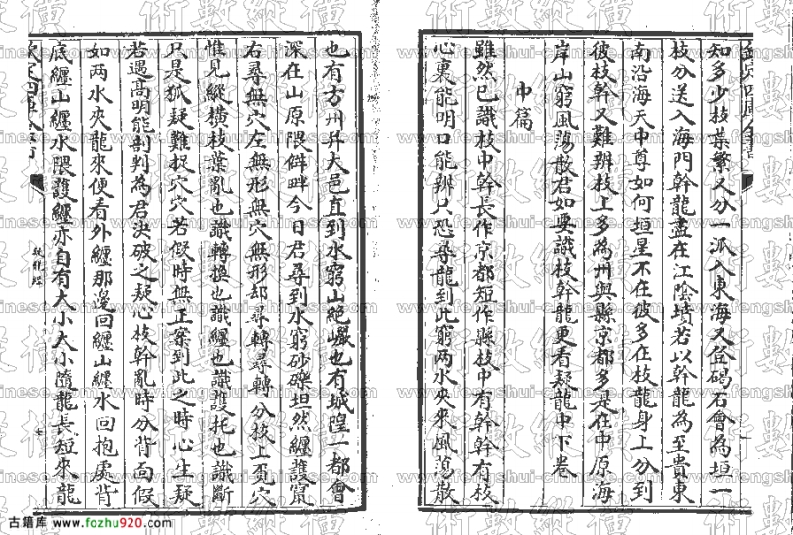 欽定四庫全書
知多少枝葉繁又分一派入東海又登碣石會為垣一
枝分送入海門幹龍盡在江陰墳若以幹龍為至貴東
南沿海天中尊如何垣星不在彼多在枝龍身上分到
彼枝幹又難辨枝上多為州與縣京都多是在中原海
岸山窮風蕩散君如要識枝幹龍更看疑龍中下卷
中篇
雖然已識枝中幹長作京都短作縣枝中有幹幹有枝
心裏能明口能辨只恐尋龍到此窮兩水夾來風蕩散
也有方州并大邑直到水窮山絶巘也有城隍一都會
深在山原隈僻畔今日君尋到水窮砂礫坦然纏護
右尋無穴左無形無穴無形却尋轉尋轉分枝上覔穴
惟見縱横枝葉亂也識轉換也識纏也識護托也識斷
只是狐疑難捉穴穴若假時無正案到此之時心生疑
若遇髙明能剖判為君決破之疑心枝幹亂時分背面假
如兩水夾龍來便看外纏那邊回纏山纏水回抱處背
底纏山纏水隈護纏亦自有大小大小隨龍長短來龍
欽定四庫全書
疑龍經
七
古籍库 www.fozhu920.com
術數縱橫
www.fengshui-chinese.com